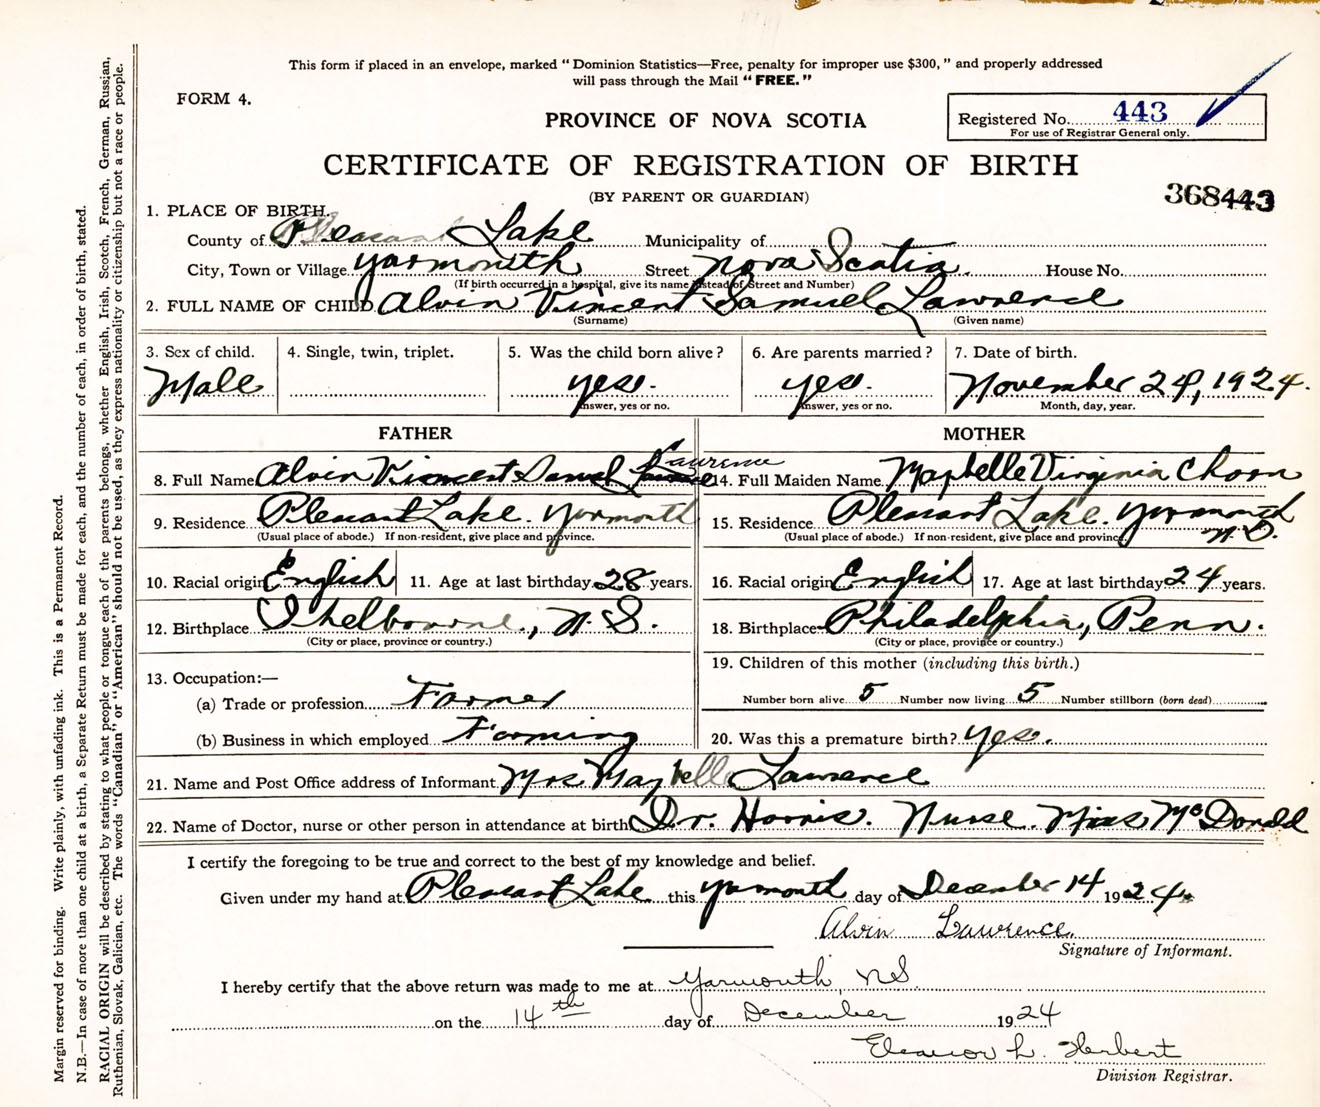 This form if placed in an envelope, marked “ Dominion Statistics—Free, penalty for improper use $300, ” and properly addressed
will pass through the Mail “ FREE. ”
FORM 4.
PROVINCE OF NOVA SCOTIA
Registered No. 443
For use of Registrar General only.
CERTIFICATE OF REGISTRATION OF BIRTH
(BY PARENT OR GUARDIAN)
368443
1. PLACE OF BIRTH.
County of Pleasant Lake Municipality of
City, Town or Village Yarmouth Street Nova Scotia. House No.
(If birth occurred in a hospital, give its name instead of Street and Number)
2. FULL NAME OF CHILD Alvin Vincent Samuel Lawrence
(Surname) (Given name)
3. Sex of child. 4. Single, twin, triplet. 5. Was the child born alive? 6. Are parents married? 7. Date of birth.
Male yes. yes. November 24, 1924.
Answer, yes or no. Answer, yes or no. Month, day, year.
FATHER MOTHER
8. Full Name Alvin Vincent Lawrence 14. Full Maiden Name Maybelle Virginia
9. Residence Pleasant Lake. Yarmouth 15. Residence Pleasant Lake. Yarmouth N.S.
(Usual place of abode.) If non-resident, give place and province. (Usual place of abode.) If non-resident, give place and province.
10. Racial origin English 11. Age at last birthday 28 years. 16. Racial origin English 17. Age at last birthday 24 years.
12. Birthplace Shelbourne, N.S. 18. Birthplace Philadelphia, Penn.
(City or place, province or country.) (City or place, province or country.)
13. Occupation:— 19. Children of this mother (including this birth.)
(a) Trade or profession Farmer Number born alive 5 Number now living 5 Number stillborn (born dead)
(b) Business in which employed Farming 20. Was this a premature birth? yes.
21. Name and Post Office address of Informant Mrs Maybelle Lawrence
22. Name of Doctor, nurse or other person in attendance at birth Dr. Harris. Nurse. Miss McDonald
I certify the foregoing to be true and correct to the best of my knowledge and belief.
Given under my hand at Pleasant Lake this Yarmouth day of December 14 1924.
Alvin Lawrence.
Signature of Informant.
I hereby certify that the above return was made to me at Yarmouth, NS.
on the 14th day of December 1924
Eleanor L. Herbert
Division Registrar.
Margin reserved for binding. Write plainly, with unfading ink. This is a Permanent Record.
N.B.—In case of more than one child at a birth, a Separate Return must be made for each, and the number of each, in order of birth, stated.
RACIAL ORIGIN will be described by stating to what people or tongue each of the parents belongs, whether English, Irish, Scotch, French, German, Russian,
Ruthenian, Slovak, Galician, etc. The words “Canadian” or “American” should not be used, as they express nationality or citizenship but not a race or people.